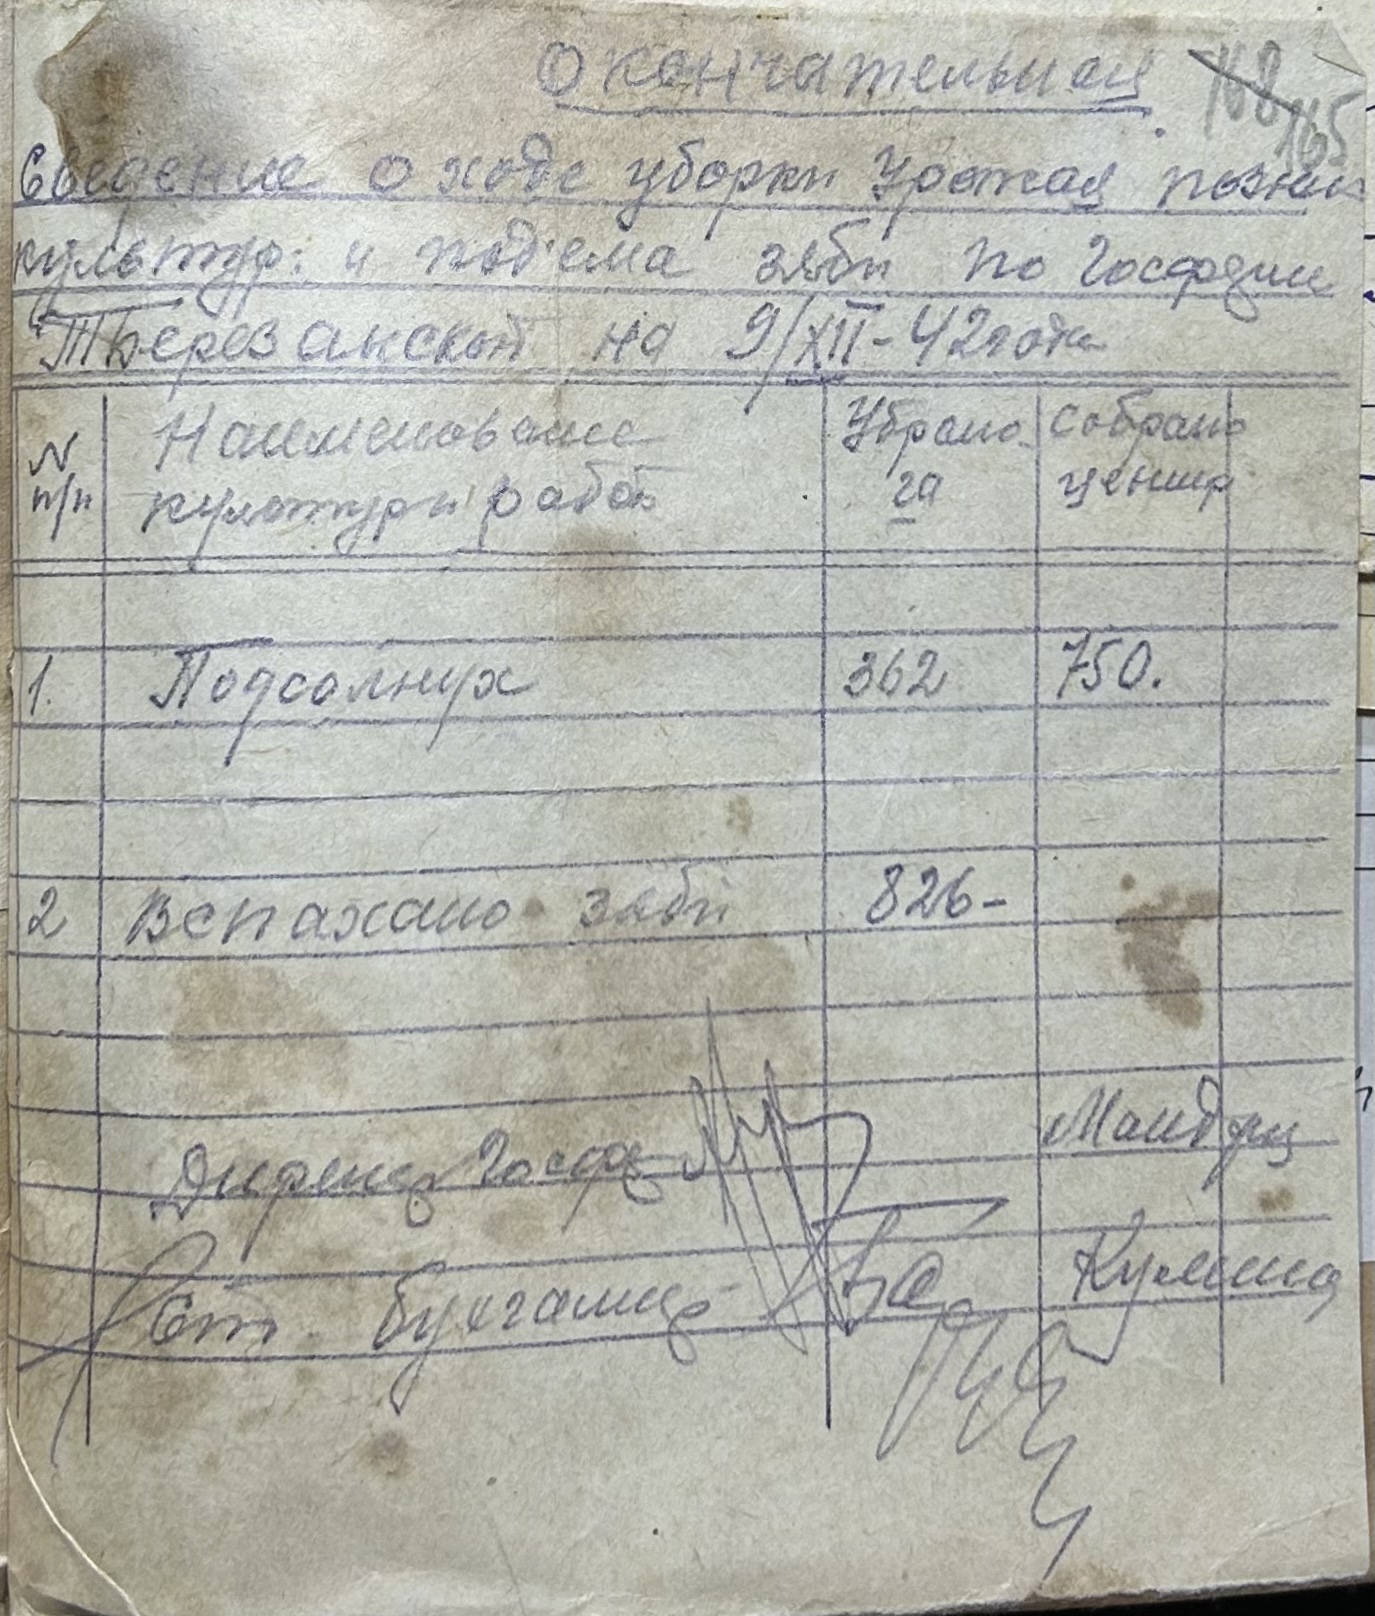 Окончательная
168 165
Сведение о ходе уборки урожая поздни
культур: и под'ема зяби по Госфдции
"Березанской на 9/XII-42 года
N п/п Наименование культур и работ Убрано га Собрано центнр
1. Подсолнух 362 750.
2 Вспахано зяби 826-
Директ Госф Мандриц
Ст. бухгалтер Кулина